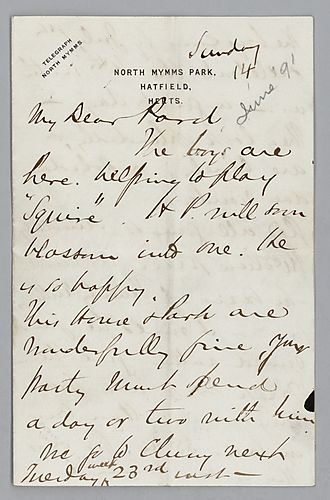 Sunday
14
June 91
TELEGRAPH
NORTH MYMMS.
NORTH MYMMS PARK,
HATFIELD,
HERTS.
My Dear
The boys are
here. helping to play
"Squire". H P. will soon
blossom into one. He
is so happy.
This House & Park are
wonderfully fine, Your
party must spend
a day or two with him
We go to Cluny next
week
Tuesday 23rd inst —